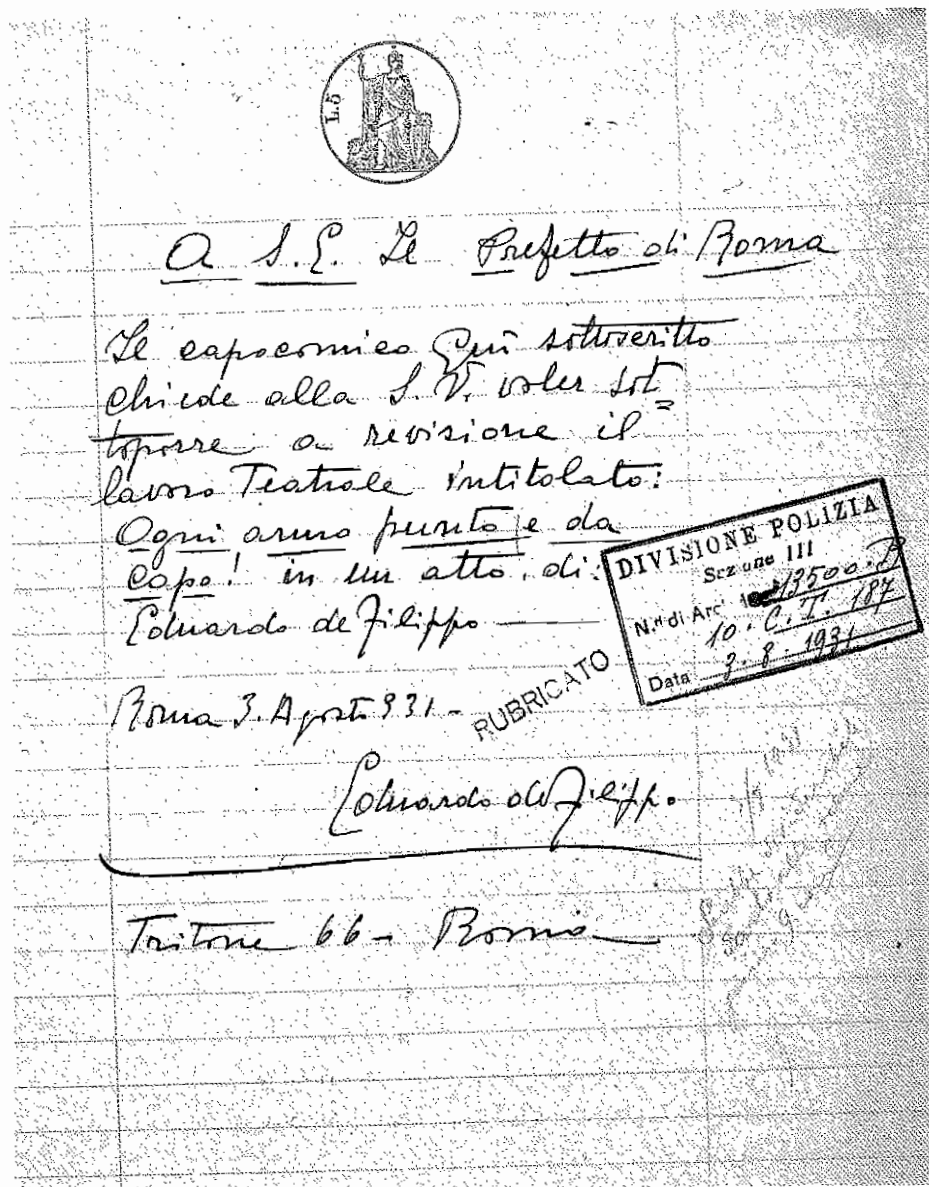 L.5
A S.E. Il Prefetto di Roma
Il capocomico quì sottoscritto
chiede alla S.V. voler sot=
toporre a revisione il
lavoro Teatrale intitolato:
Ogni anno punto e da
capo! in un atto. di:
Eduardo de Filippo —
DIVISIONE POLIZIA
Sezione III
N.º di Arc. 13500.B
10. C.T. 187
Data 3.8.1931
RUBRICATO
Roma 3. Agosto 931-
Eduardo de Filippo
Tritone 66- Roma